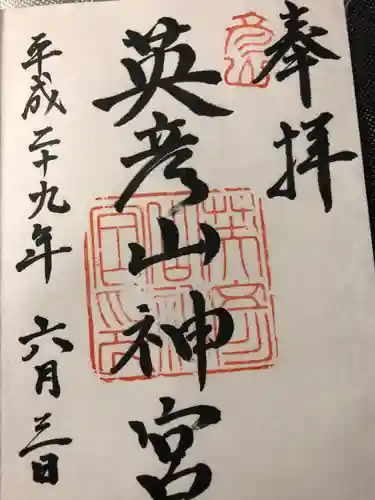 奉拝
英彦山神宮
平成二十九年 六月三日
彦山